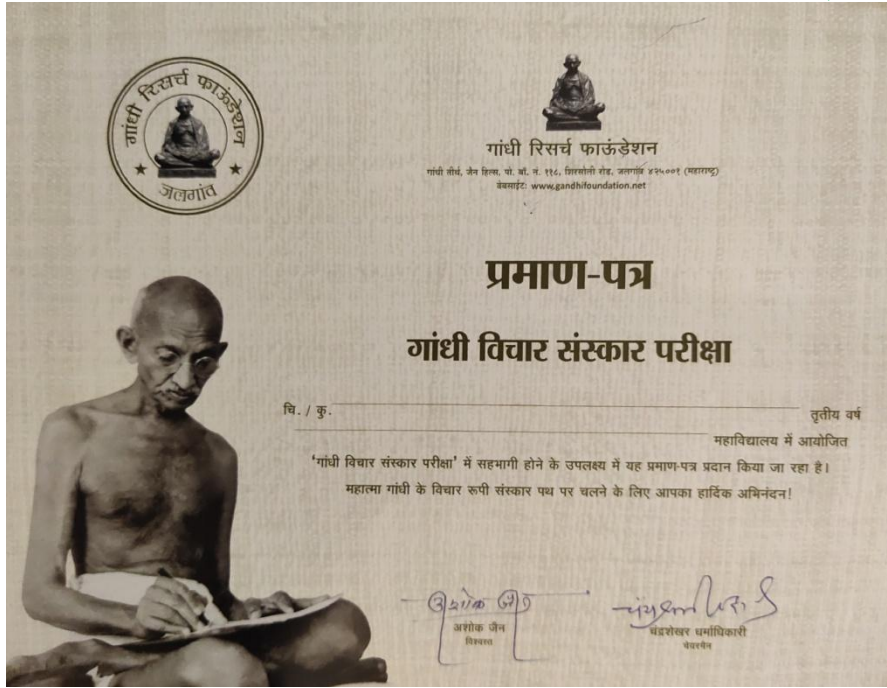 गांधी रिसर्च फाऊंडेशन
जलगांव
गांधी रिसर्च फाऊंडेशन
गांधी तीर्थ, जैन हिल्स, पो. बॉ. नं. ११८, शिरसोली रोड, जलगांव ४२५००१ (महाराष्ट्र)
वेबसाईट: www.gandhifoundation.net
प्रमाण-पत्र
गांधी विचार संस्कार परीक्षा
चि. / कु. तृतीय वर्ष
महाविद्यालय में आयोजित
'गांधी विचार संस्कार परीक्षा' में सहभागी होने के उपलक्ष्य में यह प्रमाण-पत्र प्रदान किया जा रहा है।
महात्मा गांधी के विचार रूपी संस्कार पथ पर चलने के लिए आपका हार्दिक अभिनंदन!
अशोक जैन
अशोक जैन
विश्वस्त
चंद्रशेखर धर्माधिकारी
चेयरमॅन